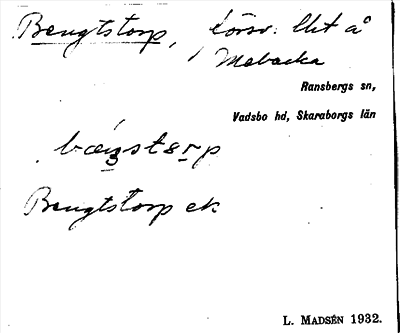 Bengtstorp, försv. lht å
Mobacka
Ransbergs sn,
Vadsbo hd, Skaraborgs län
Bengtstorp ek
L. MADSÉN 1932.